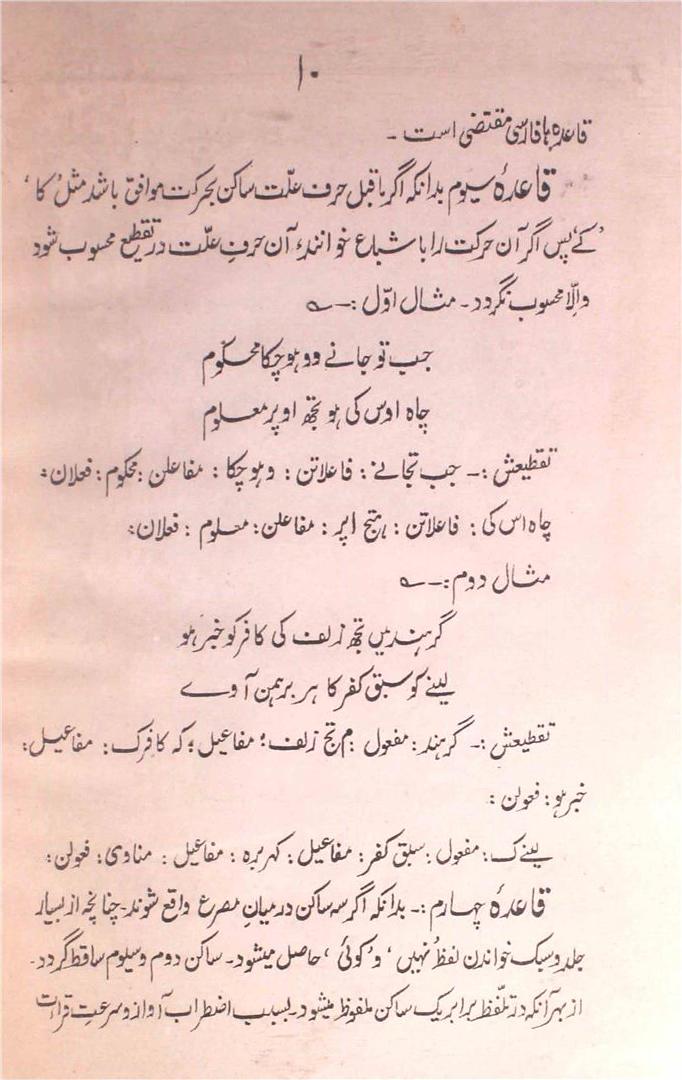 ۱۰
قاعدہ ہا فارسی مقتضی است ۔
قاعدۂ سیوم بدانکہ اگر ماقبل حرف علّت ساکن بحرکت موافق باشد مثل 'کا'
'کے' پس اگر آن حرکت را باشباع خوانند، آن حرفِ علّت در تقطیع محسوب شود
و اِلّا محسوب نگردد ۔ مثال اوّل :۔
جب تو جانے وو ہو چکا محکوم
چاہ اوس کی ہو تجھ اوپر معلوم
تقطیعش :۔ جب تجانے : فاعلاتن : وہو چکا : مفاعلن : محکوم : فعلان :
چاہ اس کی : فاعلاتن : ہتج اپر : مفاعلن : معلوم : فعلان :
مثال دوم :۔
گر ہند میں تجھ زلف کی کافر کو خبر ہو
لینے کو سبق کفر کا ہر برہمن آوے
تقطیعش :۔ گر ہند : مفعول : م تج زلف : مفاعیل : کہ کافرک : مفاعیل :
خبر ہو : فعولن :
لینے ک : مفعول : سبق کفر : مفاعیل : کہر برہ : مفاعیل : مناوی : فعولن :
قاعدۂ چہارم :۔ بدانکہ اگر سہ ساکن درمیانِ مصرع واقع شوند۔ چنانچہ از بسیار
جلد و سبک خواندن لفظ 'نہیں' و 'کوئی' حاصل میشود۔ ساکن دوم و سیوم ساقط گردد۔
از بہر آنکہ در تلّفظ برابر یک ساکن ملفوظ میشود۔ بسبب اضطراب آواز و سرعتِ قراءت